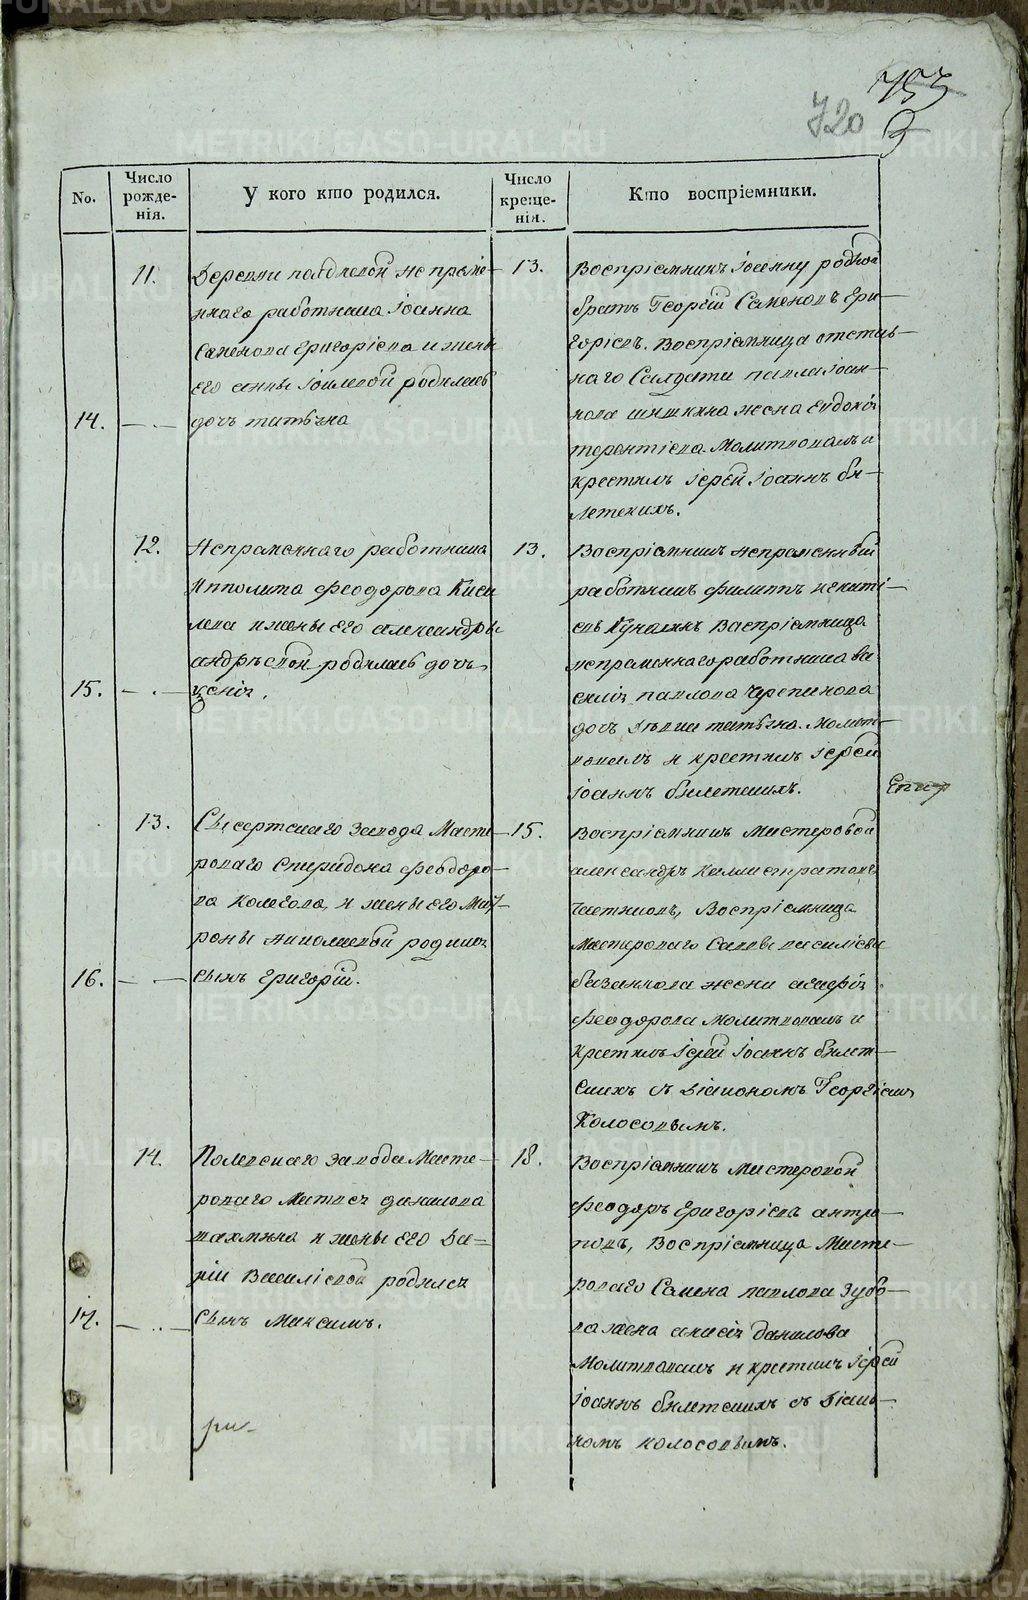 753
720
No.
Число рожде-нія.
У кого кто родился.
Число креще-нія.
Кто воспріемники.
14.
11.
Деревни павловой непреме-
ннаго работника Іоанна
Саменова Григоріева и жены
его анны родилась
дочъ татьяна
13.
Воспріемникъ Іоанну родной
братъ Георгій Саменовъ Гри-
горіевъ. Воспріемница отстав-
наго Салдата павла Іоан-
нова шишкина жена Евдокія
терентіева. Молитвовалъ и
крестилъ Іерей Іоаннъ би-
летскихъ.
15.
12.
Непременнаго работника
Ипполита Феодорова Кисе
лева и жены его александры
андрѣевой родилась дочъ
ксенія.
13.
Воспріемникъ непременный
работникъ филиппъ никиті-
евъ Воспріемница
непременнаго работника ва
силія павлова Черепанова
дочъ дѣвица татьяна. Молит-
вовалъ и крестилъ Іерей
Іоаннъ билетскихъ.
16.
13.
Сысертскаго завода Масте-
роваго Спиридона Феодоро-
ва и жены его Мат-
роны родился
сынъ Григорій.
15.
Воспріемникъ Мастеровой
александръ Каллистратовъ
Воспріемница
Мастероваго Саввы василіева
жена агафія
Феодорова Молитвовалъ и
крестилъ Іерей Іоаннъ билет-
скихъ съ Діакономъ Георгіемъ
Колосовымъ.
17.
14.
Полевскаго завода Масте-
роваго Матвея данилова
шахмина и жены его Да=
ріи Василіевой родился
сынъ Максимъ.
18.
Воспріемникъ Мастеровой
Феодоръ Григоріевъ антро-
повъ, Воспріемница Масте-
роваго Самена павлова Зубо-
ва жена анисія Данилова
Молитвовалъ и крестилъ Іерей
Іоаннъ билетскихъ съ Діако-
номъ Колосовымъ.
METRIKI.GASO-URAL.RU